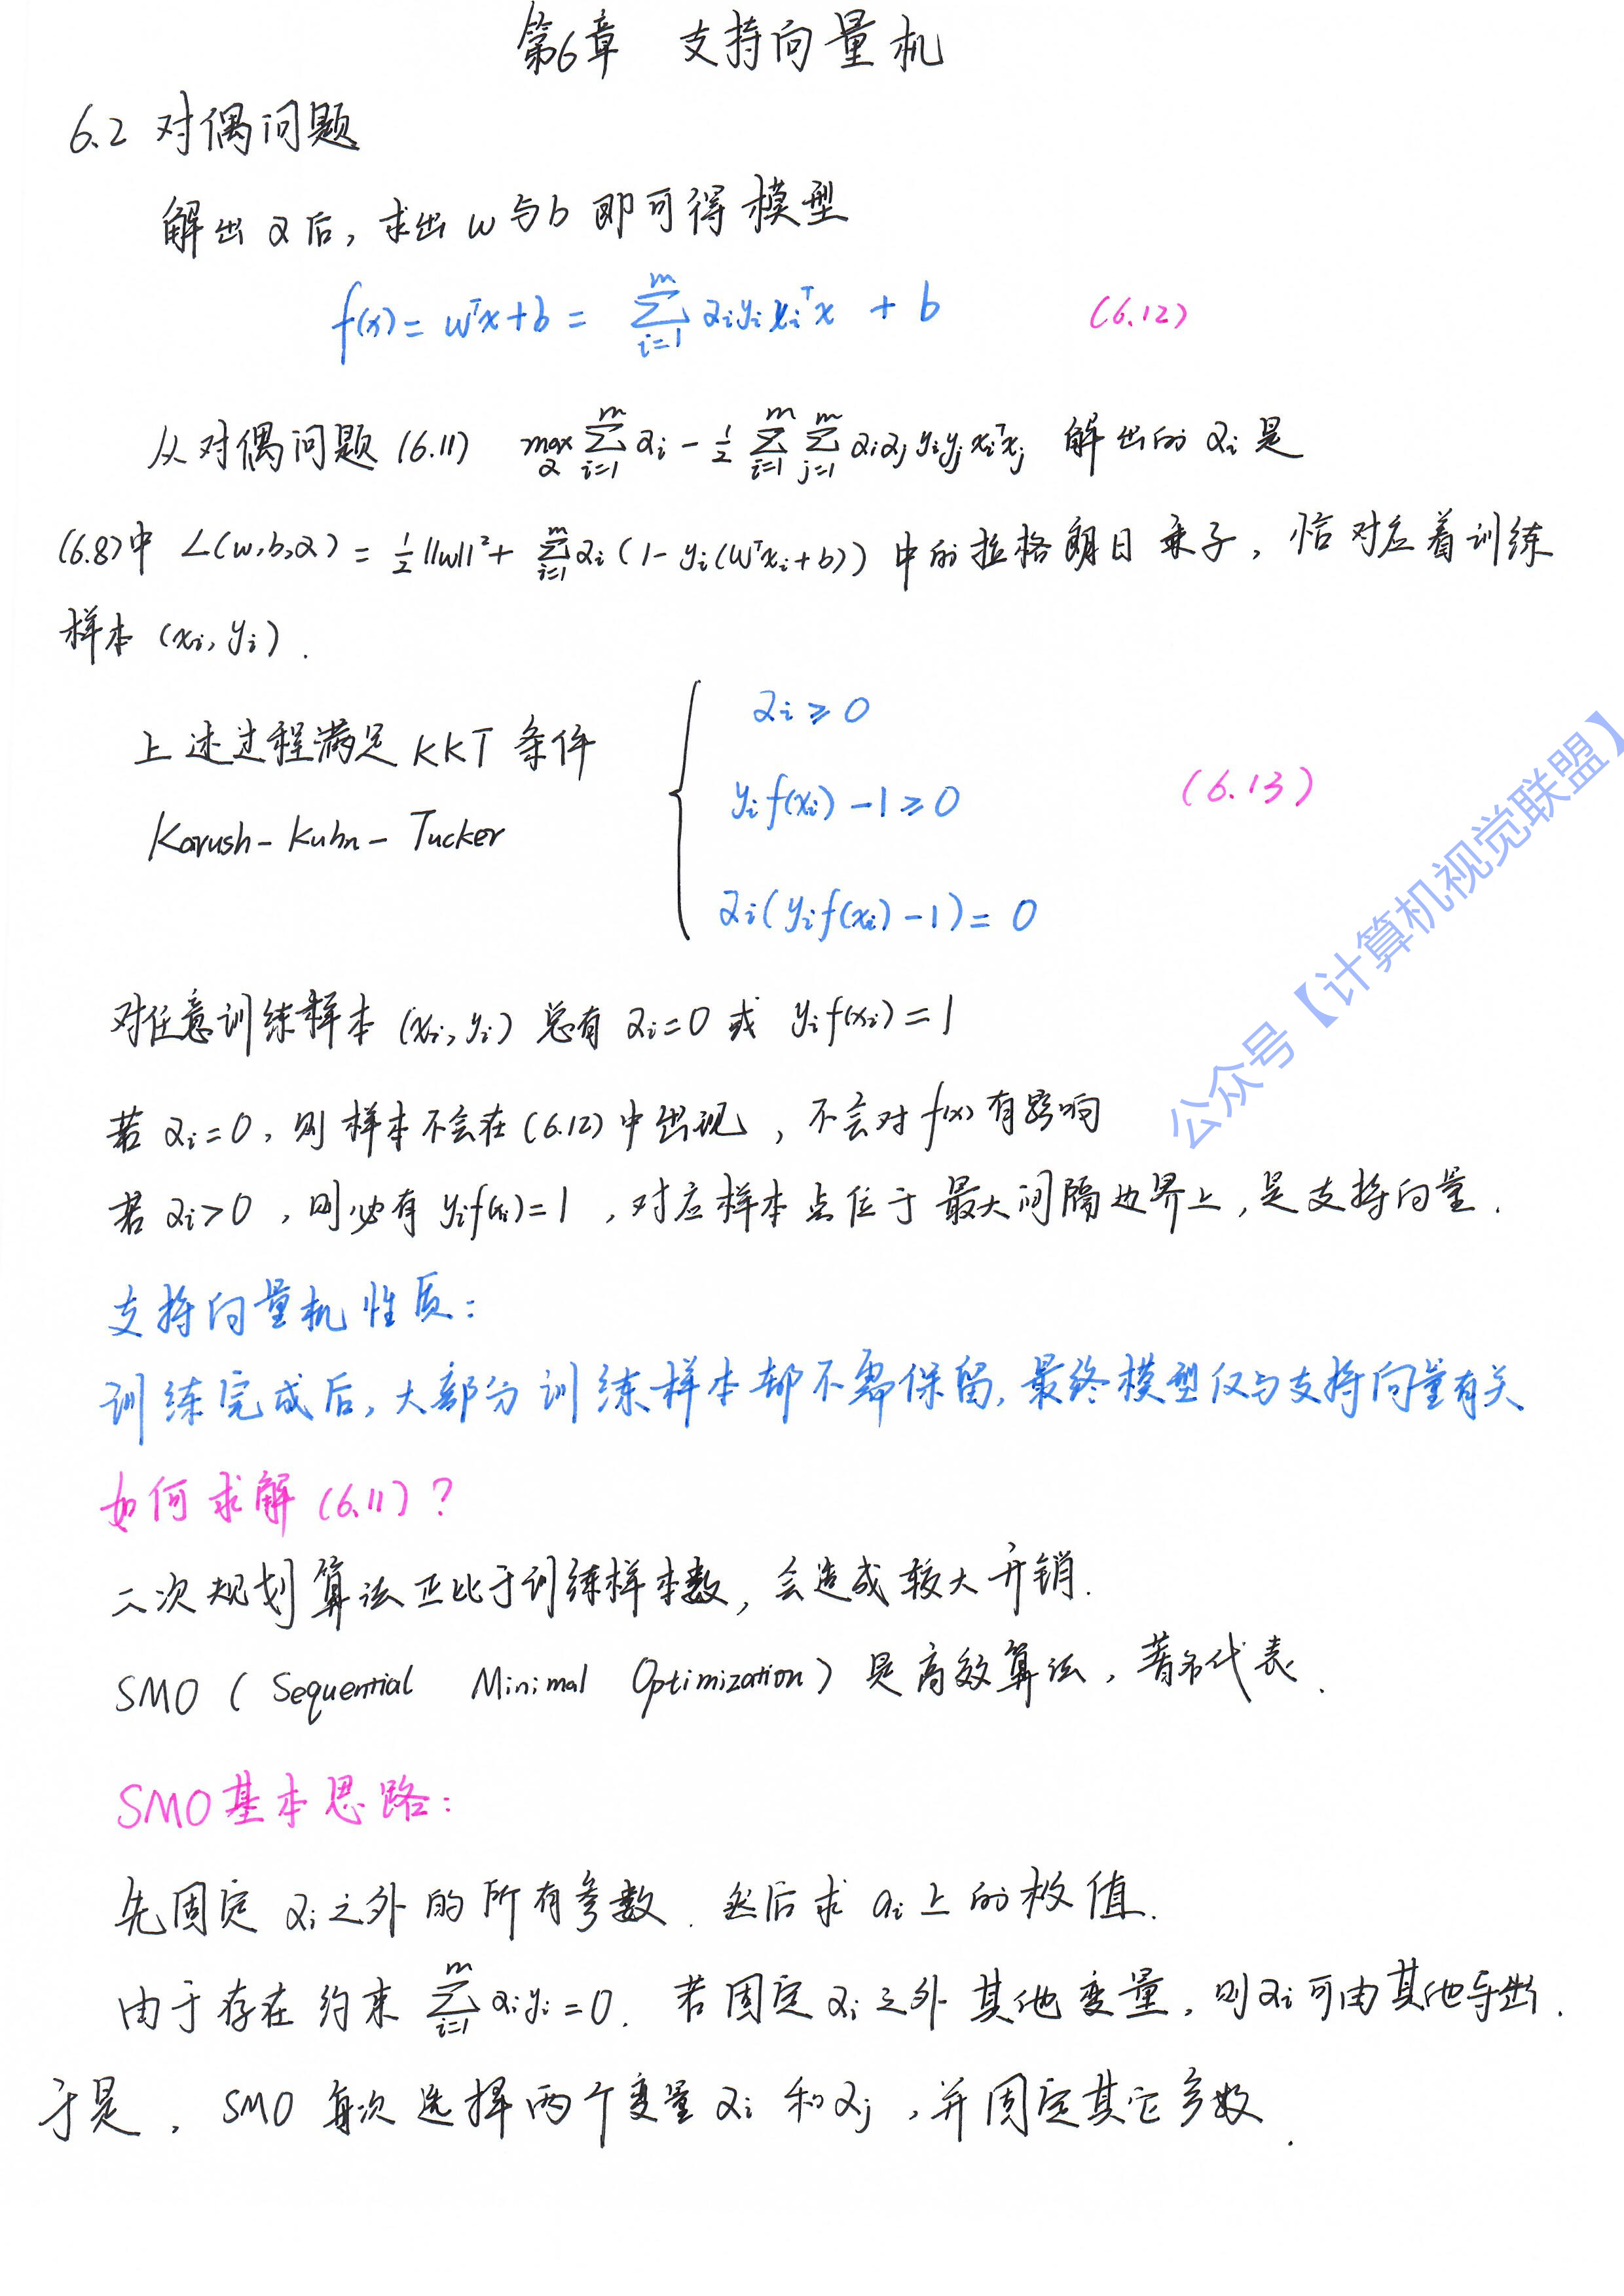 第6章 支持向量机
6.2 对偶问题
解出α后，求出w与b即可得模型
f(x) = wᵀx+b = ∑_{i=1}^{m} αᵢyᵢxᵢᵀx + b (6.12)
从对偶问题(6.11) max_α ∑_{i=1}^{m} αᵢ - 1/2 ∑_{i=1}^{m} ∑_{j=1}^{m} αᵢαⱼyᵢyⱼxᵢᵀxⱼ 解出的αᵢ是
(6.8)中 L(w,b,α) = 1/2||w||² + ∑_{i=1}^{m} αᵢ(1-yᵢ(wᵀxᵢ+b)) 中的拉格朗日乘子，恰对应着训练
样本(xᵢ, yᵢ).
上述过程满足KKT条件
Karush-Kuhn-Tucker
αᵢ ≥ 0
yᵢf(xᵢ) - 1 ≥ 0
αᵢ(yᵢf(xᵢ) - 1) = 0
(6.13)
对任意训练样本(xᵢ, yᵢ)总有αᵢ=0或 yᵢf(xᵢ)=1
若αᵢ=0，则样本不会在(6.12)中出现，不会对f(x)有影响
若αᵢ>0，则必有yᵢf(xᵢ)=1，对应样本点位于最大间隔边界上，是支持向量.
支持向量机性质：
训练完成后，大部分训练样本都不需保留，最终模型仅与支持向量有关
如何求解(6.11)？
二次规划算法正比于训练样本数，会造成较大开销.
SMO (Sequential Minimal Optimization) 是高效算法，著名代表.
SMO基本思路：
先固定αᵢ之外的所有参数. 然后求αᵢ上的极值.
由于存在约束 ∑_{i=1}^{m} αᵢyᵢ=0. 若固定αᵢ之外其他变量，则αᵢ可由其他导出.
于是，SMO每次选择两个变量αᵢ和αⱼ，并固定其它参数.
公众号【计算机视觉联盟】